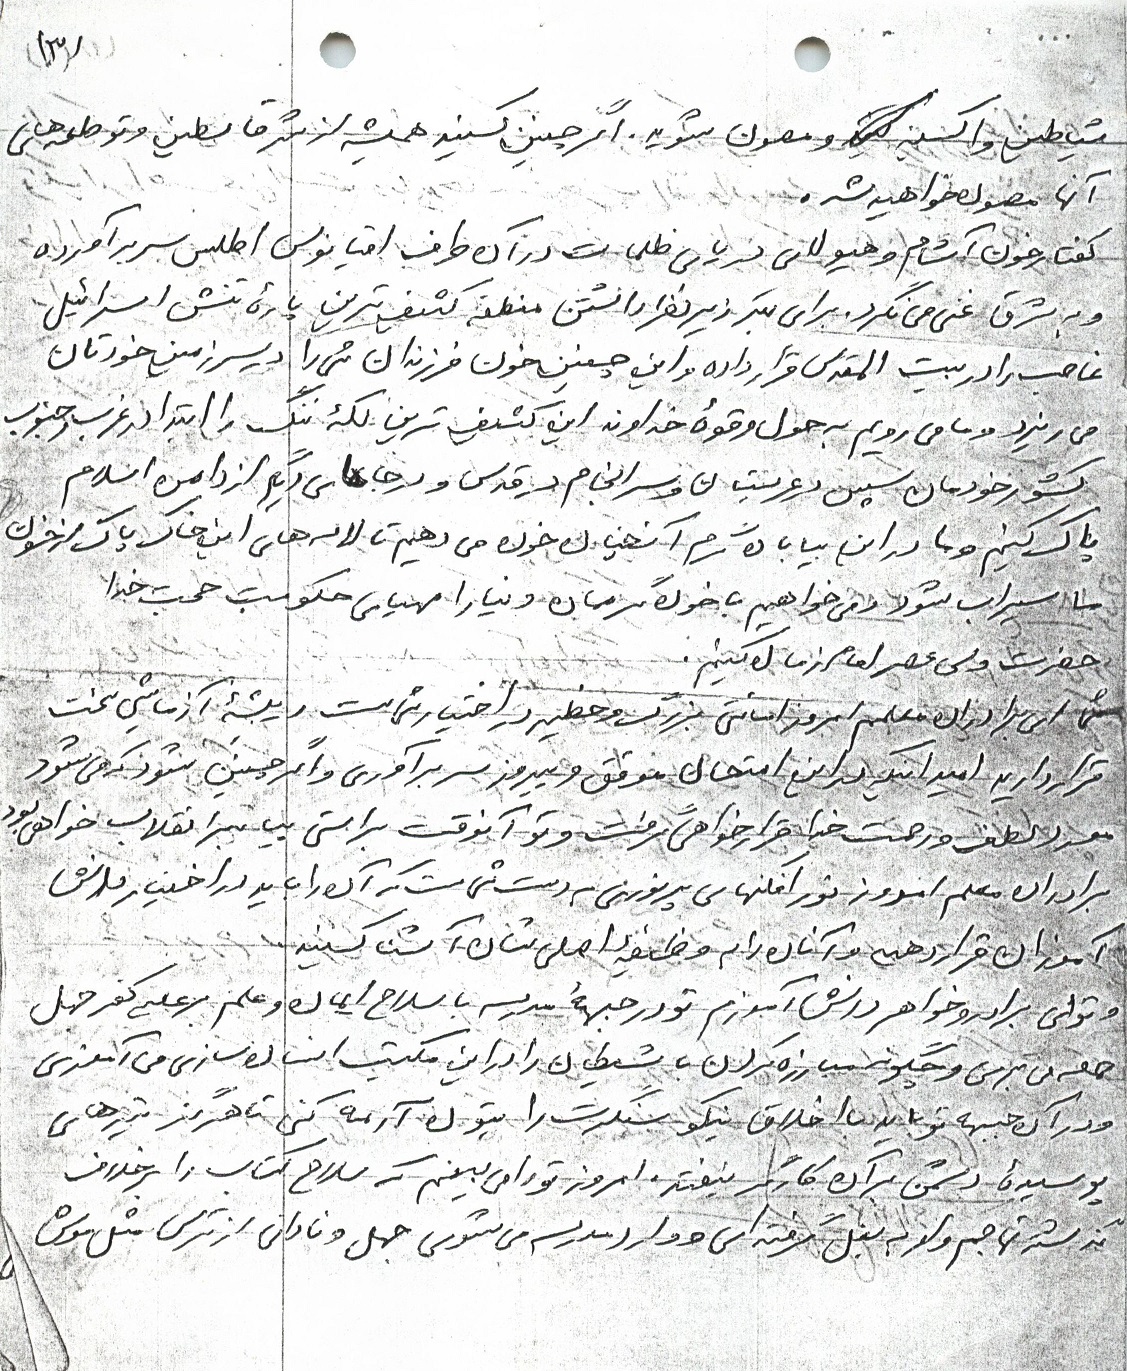 (۳)
شیاطین واکسینه و مصون شوید. اگر چنین کنید همیشه از شر شیاطین و توطئه‌های
آنها مصون خواهید شد.
کفتار خون آشام و هیولای دریای ظلمات در آن طرف اقیانوس اطلس سر برآورده
و به شرق غنی می‌نگرد. برای زیر نظر داشتن منطقه کثیف ترین پارهٔ تنش اسرائیل
غاصب را در بیت المقدس قرار داده و این چنین خون فرزندان را در سرزمین خودتان
می‌ریزد و ما می رویم به حول و قوهٔ خداوند این کثیف ترین لکهٔ ننگ را ابتدا در غرب و جنوب
کشور خودمان سپس در عربستان و سرانجام در قدس و در جاهای دیگر از دامن اسلام
پاک کنیم و ما در این بیابان گرم آنچنان خون می دهیم تا لاله‌های این خاک پاک از خون
ما سیراب شود و می‌خواهیم با خون گرممان دنیا را مهیای حکومت حجت خدا
حضرت ولی عصر امام زمان کنیم.
شما ای برادران معلم امروز امانتی بزرگ و خطیر در اختیار شماست و در آزمایشی سخت
قرار دارید امید آنکه از این امتحان موفق و پیروز سر برآوری و اگر چنین شود که می‌شود
مورد لطف و رحمت خدا قرار خواهی گرفت و تو آنوقت براستی پیامبر انقلاب خواهی بود
برادران معلم امروز نورافکنهای پر نوری به دست شماست که آن را باید در اختیار دانش
آموزان قرار دهید و آنان را به وظایف اصلی شان آشنا کنید.
و توای برادر و خواهر دانش آموزم تو در جبههٔ مدرسه با سلاح ایمان و علم بر علیه کفر جهل
حمله می‌بری و چگونه مبارزه کردن با شیطان را در این مکتب انسان سازی می آموزی
و در آن جبهه تو باید با اخلاق نیکو سنگرت را بتون آرمه کنی تا هرگز تیرهای
پوسیدهٔ دشمن بر آن کارگر نیفتد. امروز تو را می بینم که سلاح کتاب را برخلاف
گذشته به بغل گرفته‌ای و وارد مدرسه می شوی جهل و نادانی از ترس مثل موش